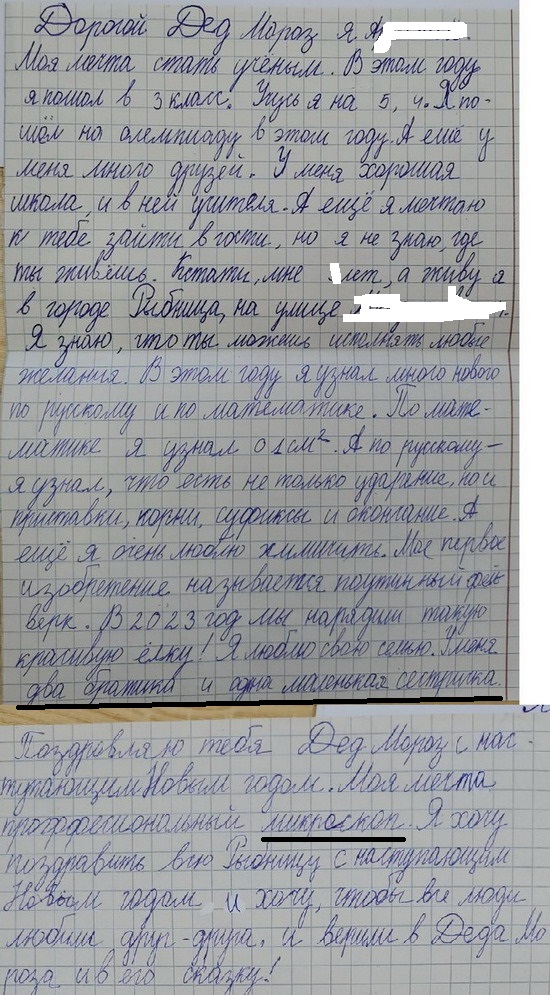 Дорогой Дед Мороз я А
Моя мечта стать учёным. В этом году
я пошол в 3 класс. Учусь я на 5, 4. Я по-
шём на олемпиаду в этом году. А ещё у
меня много друзей. У меня хорошая
школа, и в ней учителя. А ещё я мечтаю
к тебе зайти в гости, но я не знаю, где
ты живёшь. Кстати, мне лет, а живу я
в городе Рыбница, на улице
Я знаю, что ты можешь исполнять любые
желания. В этом году я узнал много нового
по русскому и по математике. По мате-
матике я узнал о 1 см². А по русскому –
я узнал, что есть не только ударение, но и
приставки, корни, суфиксы и окончание. А
ещё я очень люблю химичить. Мое первое
изобретение называется паутинный фей-
верк. В 2023 год мы нарядили такую
красивую ёлку! Я люблю свою семью. У меня
два братика и одна маленькая сестричка.
Поздравляю тебя Дед Мороз с нас-
тупающим Новым годом. Моя мечта
професиональный микроскоп. Я хочу
поздравить всю Рыбницу с наступающим
Новым годом и хочу, чтобы все люди
любили друг-друга, и верили в Деда Мо
роза и в его сказку!